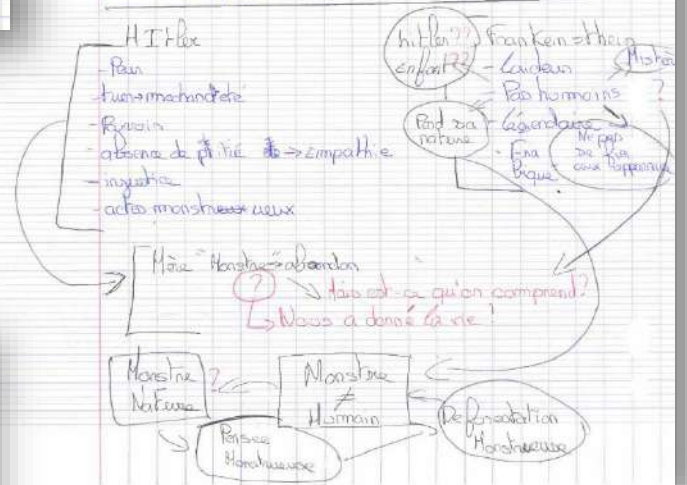 HItler
- Peur
- tuer→mechanceté
- absence de pitié → Empathie
- injustice
- actes monstrueux
hitler??
enfant??
Frankein=thein
- Laideur
- Pas humains ?
- Légendaire
Perd sa
nature
Ne pas
se fier
aux apparences
Mère "Monstre"→abandon
?
↘ Mais est-ce qu'on comprend?
↳ Nous a donné la vie!
Monstre
Nature
?
Monstre
≠
Humain
Pensée
Monstrueuse
Monstrueuse